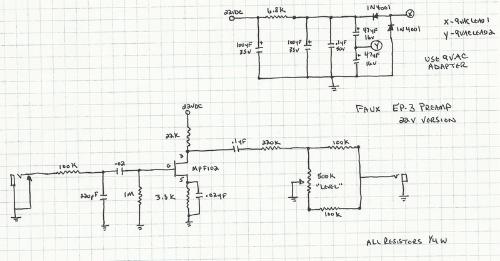 22VDC
6.8K
1N4001
X
X-9VAC LEAD1
Y-9VAC LEAD2
1N4001
100µF
35V
100µF
35V
.1µF
50V
47µF
16V
Y
47µF
16V
USE 9VAC
ADAPTER
FAUX EP-3 PREAMP
22V VERSION
22VDC
22K
.1µF
220K
100K
D
G
S
MPF102
100K
.02
220pF
1M
3.3K
.02µF
500K
"LEVEL"
100K
ALL RESISTORS 1/4 W